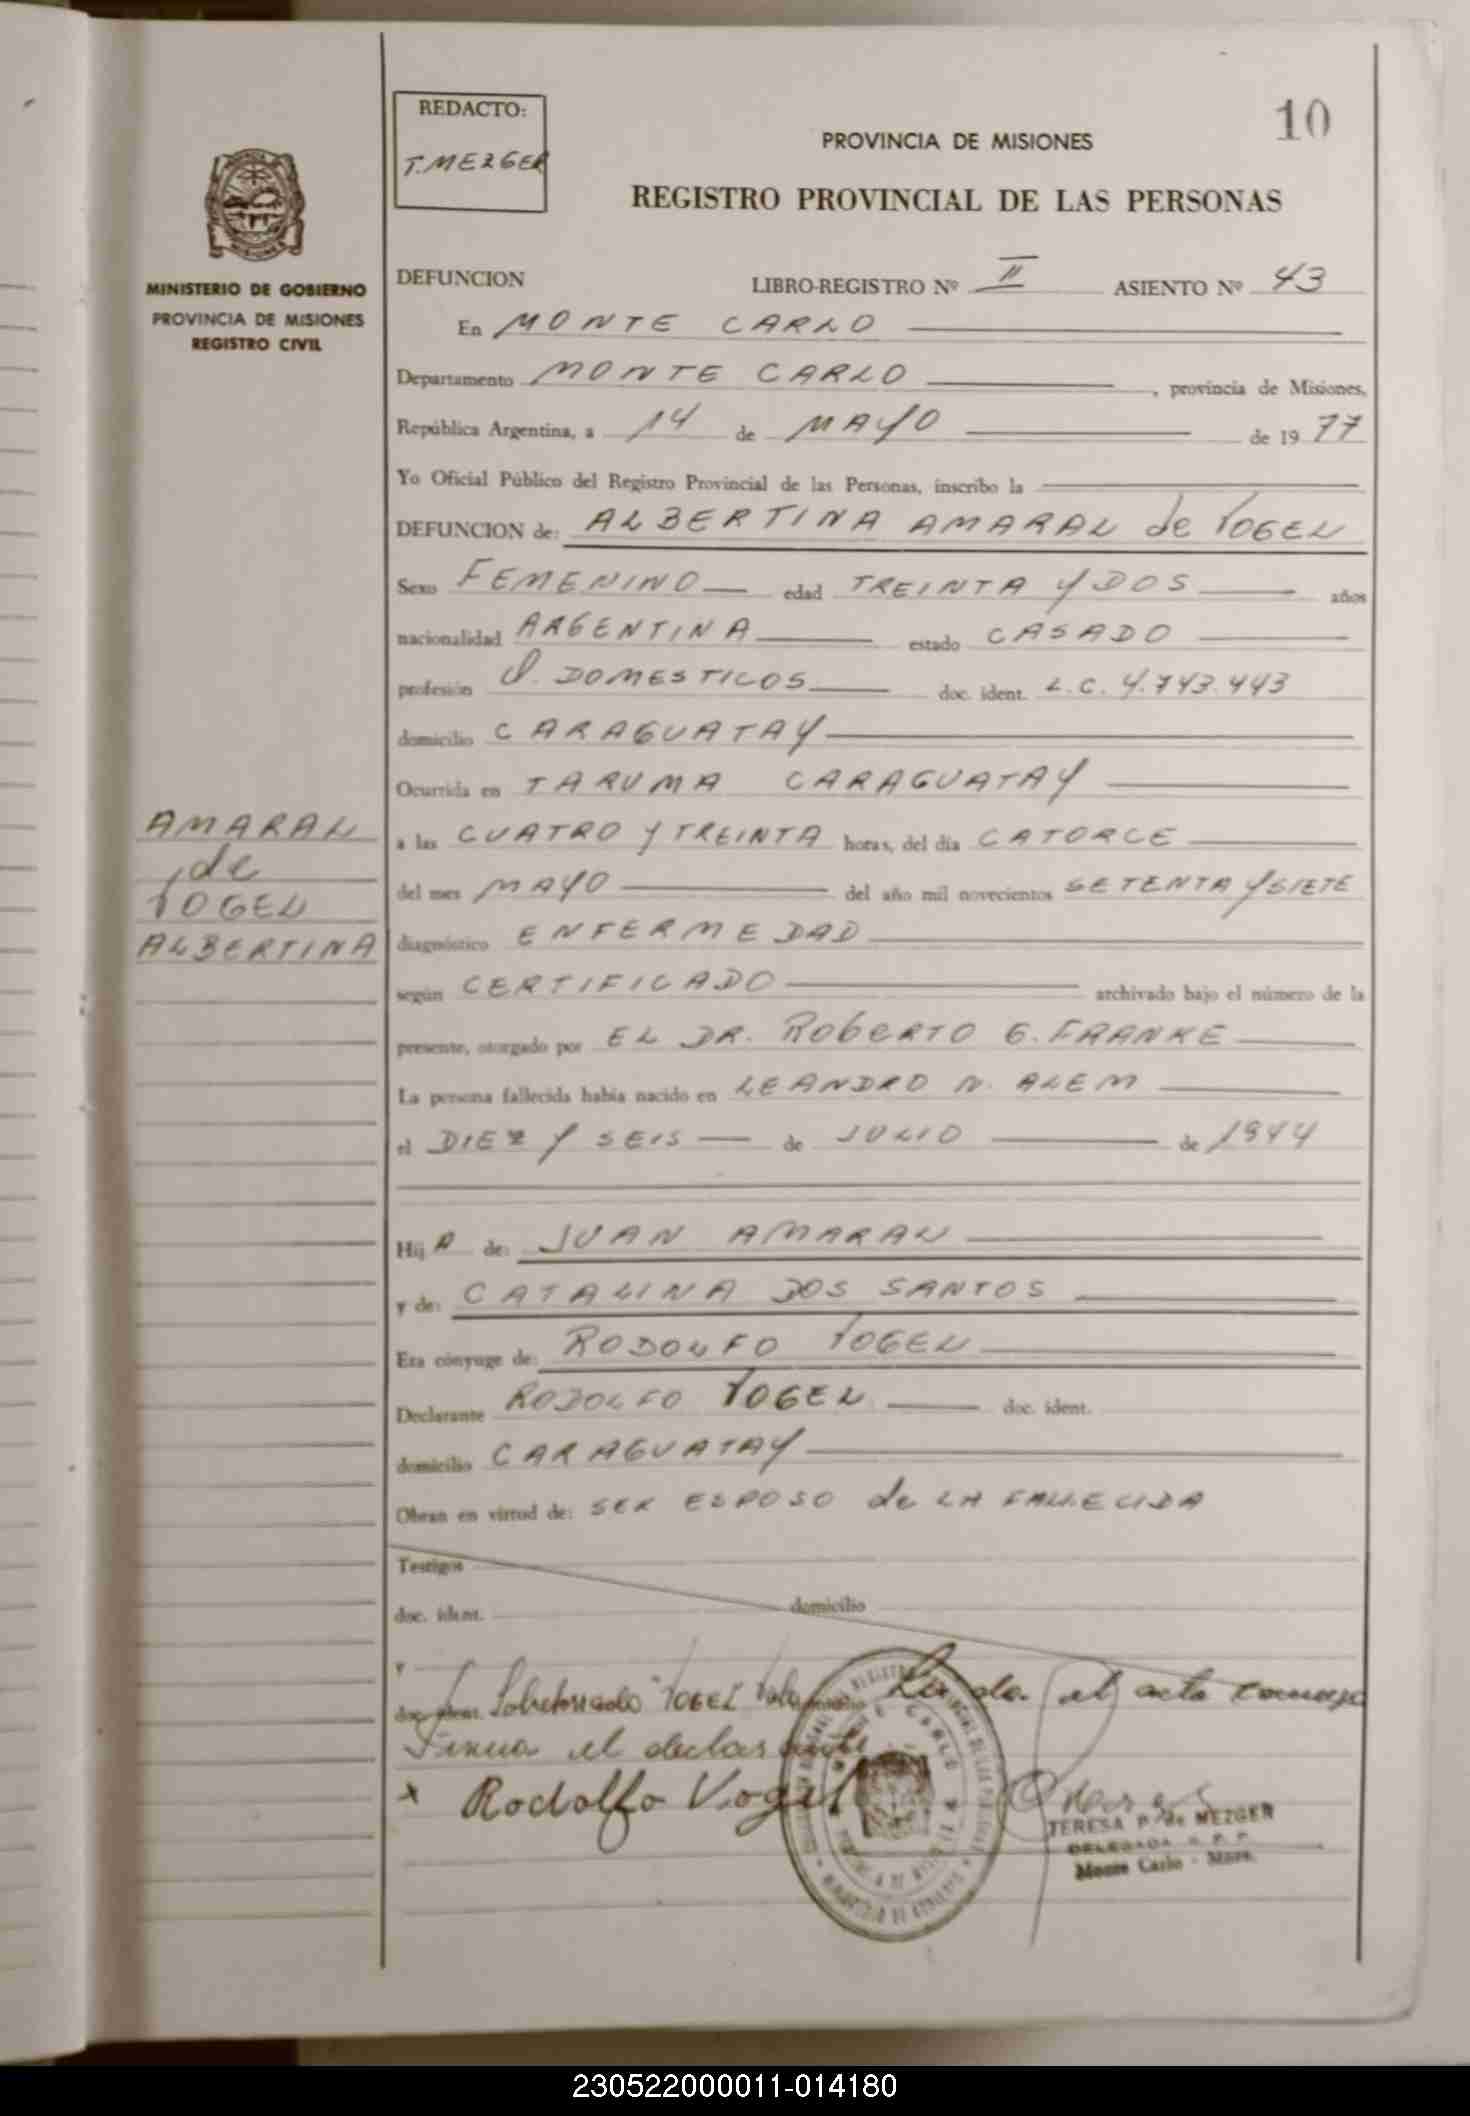 10
REDACTO:
T. MEZGER
PROVINCIA DE MISIONES
REGISTRO PROVINCIAL DE LAS PERSONAS
MINISTERIO DE GOBIERNO
PROVINCIA DE MISIONES
REGISTRO CIVIL
DEFUNCION LIBRO-REGISTRO Nº II ASIENTO Nº 43
En MONTE CARLO
Departamento MONTE CARLO, provincia de Misiones,
República Argentina, a 14 de MAYO de 1977
Yo Oficial Público del Registro Provincial de las Personas, inscribo la
DEFUNCION de: ALBERTINA AMARAL de VOGEL
Sexo FEMENINO edad TREINTA Y DOS años
nacionalidad ARGENTINA estado CASADO
profesión Q. DOMESTICOS doc. ident. L.C. 4.743.443
domicilio CARAGUATAY
Ocurrida en TARUMA CARAGUATAY
AMARAL
de
VOGEL
ALBERTINA
a las CUATRO Y TREINTA horas, del día CATORCE
del mes MAYO del año mil novecientos SETENTA Y SIETE
diagnóstico ENFERMEDAD
según CERTIFICADO archivado bajo el número de la
presente, otorgado por EL DR. ROBERTO G. FRANKE
La persona fallecida había nacido en LEANDRO N. ALEM
el DIEZ Y SEIS de JULIO de 1944
Hij A de: JUAN AMARAL
y de: CATALINA DOS SANTOS
Era cónyuge de: RODOLFO VOGEL
Declarante RODOLFO VOGEL doc. ident.
domicilio CARAGUATAY
Obran en virtud de: SER ESPOSO de LA FALLECIDA
Testigos
doc. ident. domicilio
y
doc. ident. Sobreborrado "VOGEL" Vale Leida el acta conmigo
Firma el declarante
x Rodolfo Vogel
TERESA P. de MEZGER
DELEGADA R. P. P.
Monte Carlo - Mnes.
230522000011-014180